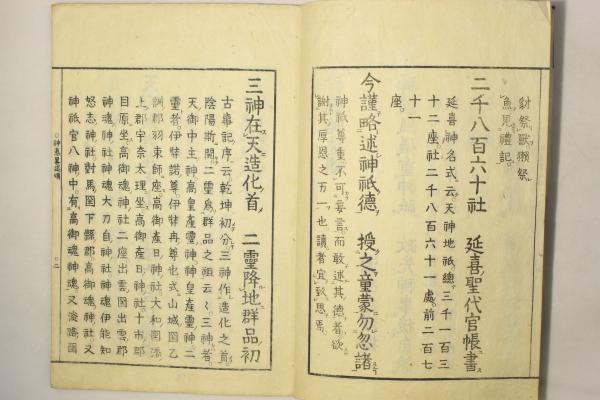 豺祭獸獺祭
魚見禮記
二千八百六十社　延喜聖代官帳書
延喜神名式云天神地祇總三千一百三
十二座社二千八百六十一處前二百七
十一
座
今謹略述神祇德　授之童蒙勿忽諸
神祇尊重不可妄言而敢述其德者欲
謝其厚恩之万一也讀者宜致思焉
三神在天造化首　二靈降地群品初
古事記序云乾坤初分三神作造化之首
陰陽斯開二靈爲群品之祖云々三神者
天御中主神高皇產靈神神皇產靈神二
靈者伊弉諾尊伊弉冉尊也式山城國乙
訓郡羽束師坐高御產日神社大和國添
上郡宇奈太理坐高御產日神社十市郡
目原坐高御魂神社二座出雲國出雲郡
神魂神社神魂大刀自神社神魂伊能知
怒志神社對馬國下縣郡高御魂神社又
神祇官八神中有高御魂神魂又淡路國
二